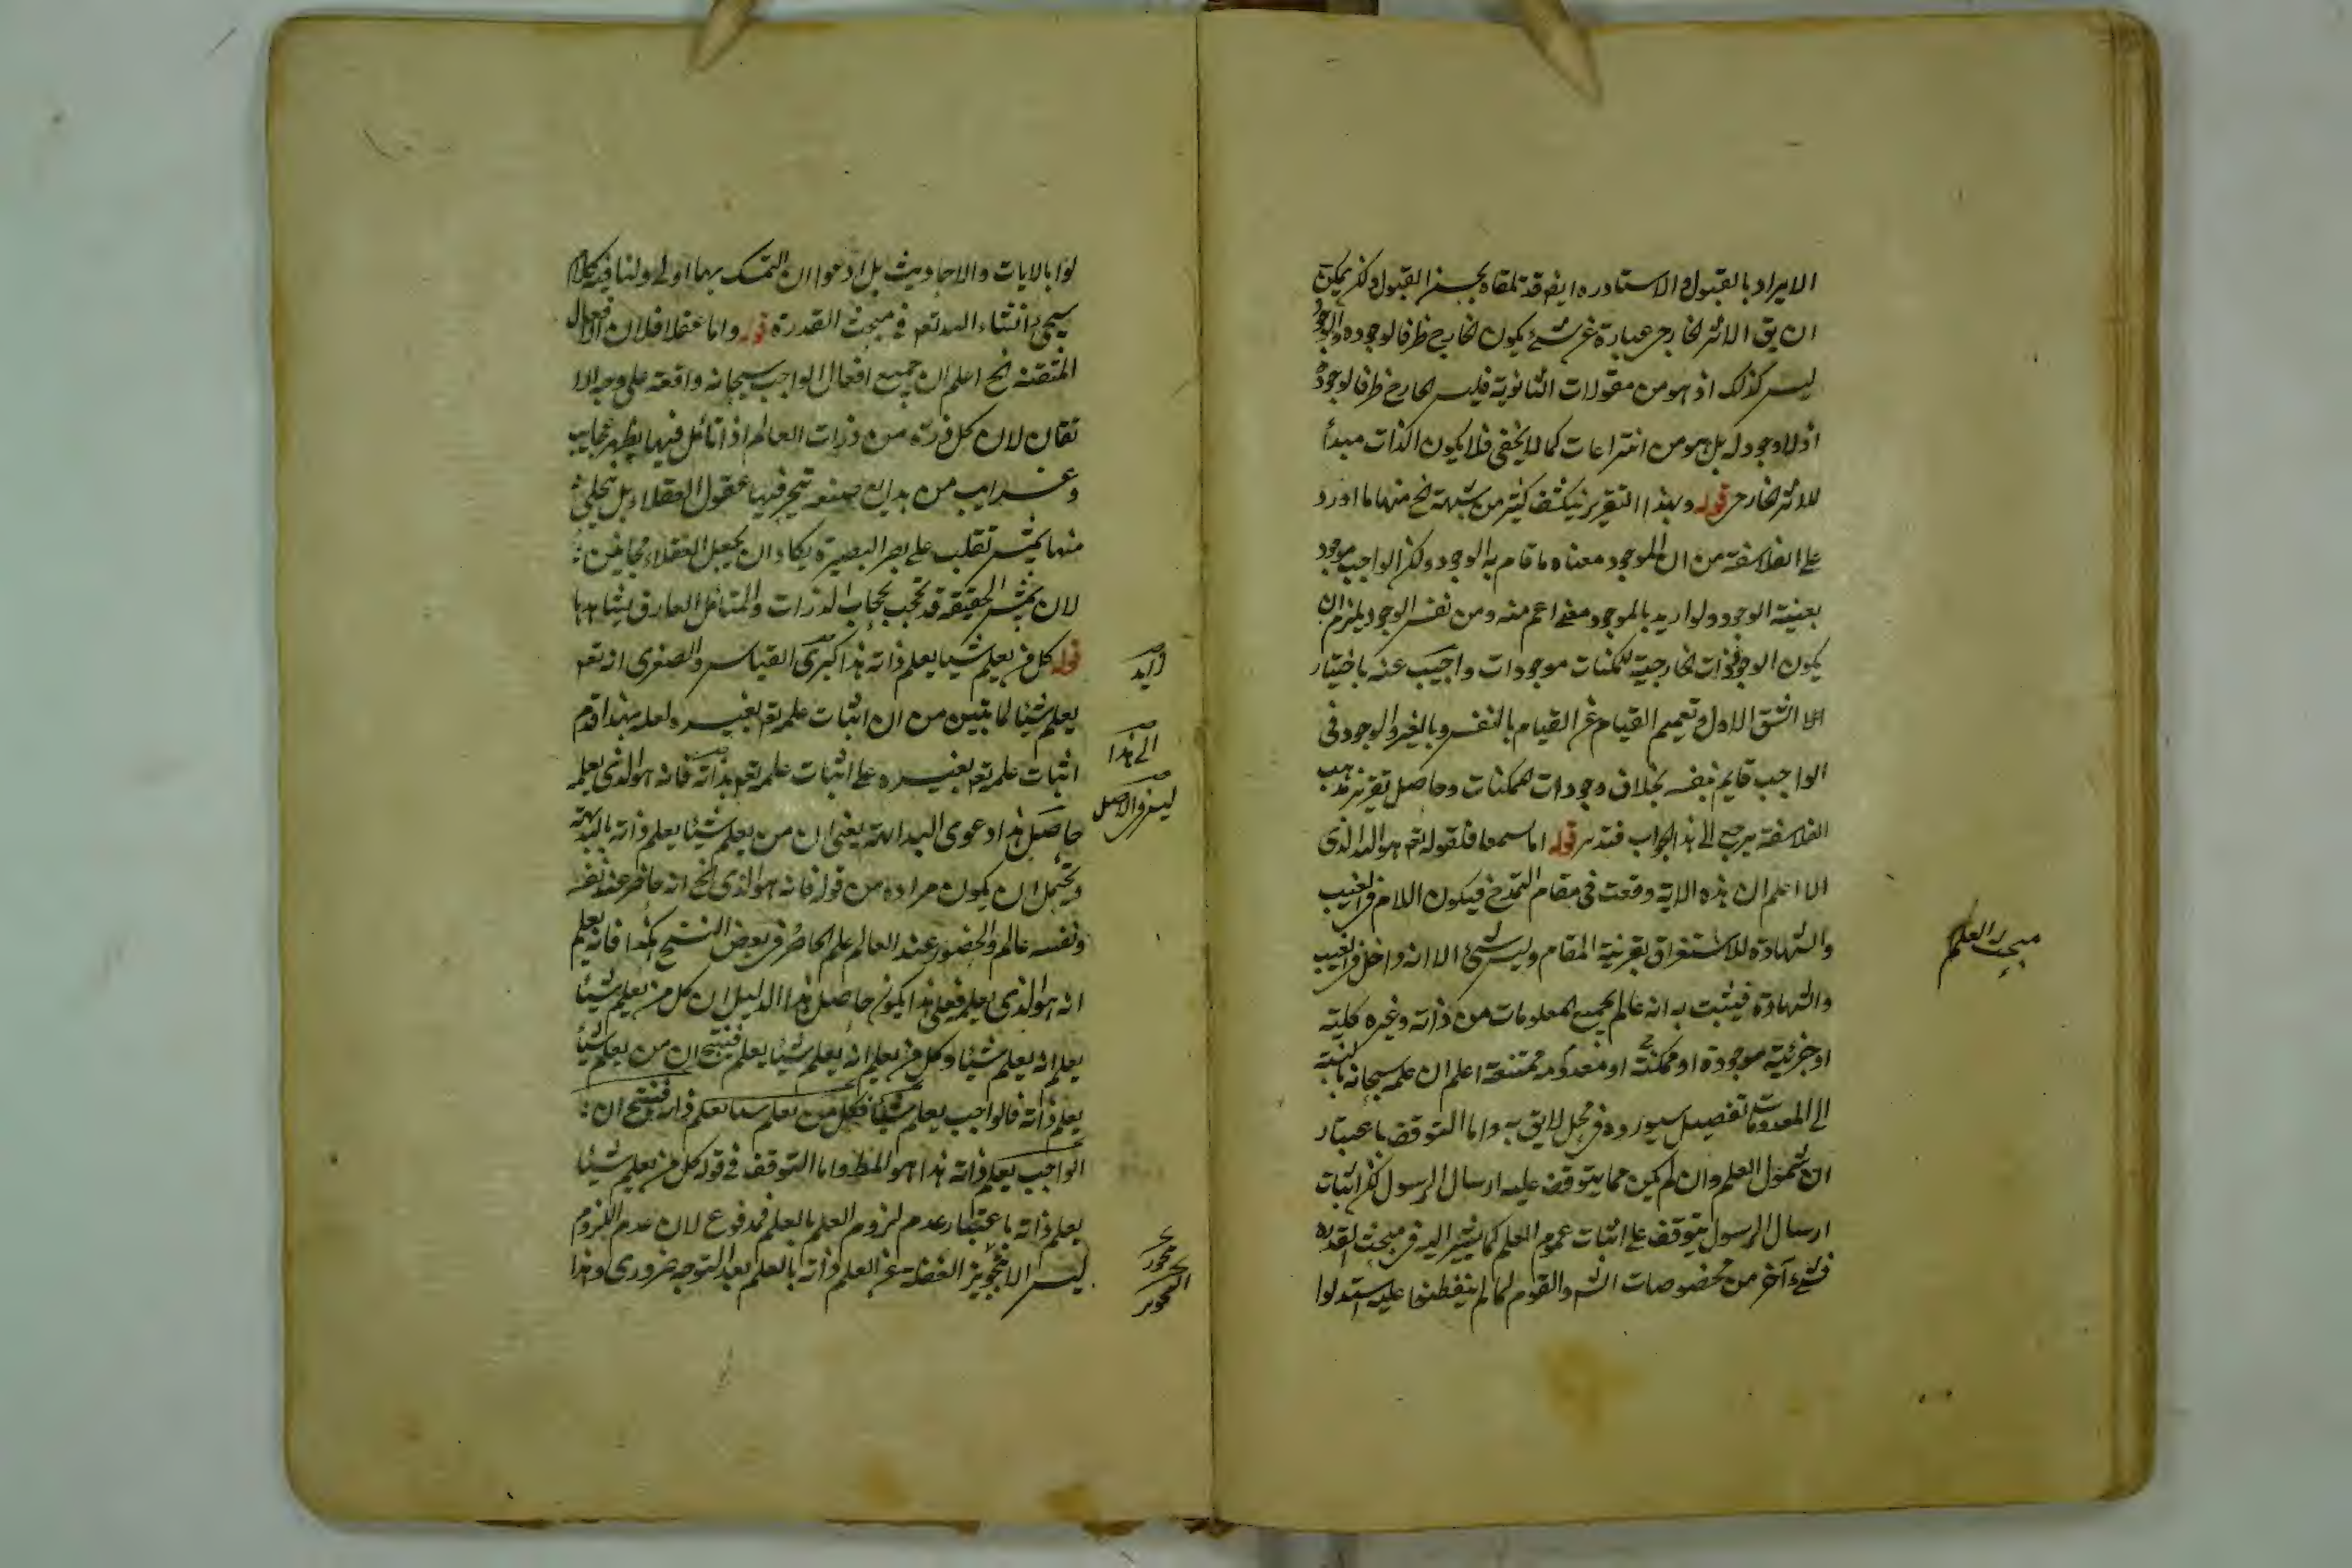 الايراد بالقبول والاستادره ايض قد تلقاه بحسن القبول ولكن يمكن
ان يق الاثر الخارجى عبارة عن شئ يكون الخارج ظرفا لوجوده والوجود
ليس كذلك اذ هو من مقولات الثانوية فليس الخارج ظرفا لوجوده
اذ لا وجود له بل هو من انتراعات كما لا يخفى فلا يكون الذات مبدأ
للاثر الخارجى قوله وبهذا التقرير ينكشف كثير من شبهة الخ منها ما اورد
على الفلاسفة من ان الموجود معناه ما قام به الوجود ولكن الواجب موجود
بعينية الوجود ولو اريد بالموجود معنى اعم منه ومن نفس الوجود يلزم ان
يكون الوجودات الخارجية للمكنات موجودات واجيب عنه باختيار
الشق الاول وتعميم القيام عن القيام بالنفس وبالغير والوجود فى
الواجب قايم بنفسه بخلاف وجودات الممكنات وحاصل تقرير مذهب
الفلاسفة يرجع الى هذا الجواب فتدبر قوله اما سمعا فلقوله تعم هو الله الذى
اعلم ان هذه الاية وقعت فى مقام التمدح فيكون اللام فى الغيب
والشهادة للاستغراق بقرينة المقام وليس شئ الا انه داخل فى الغيب
والشهادة فيثبت به انه عالم بجميع المعلومات من ذاته وغيره كلية
او جزئية موجودة او ممكنة او معدومة ممتنعة اعلم ان علمه سبحانه بالنسبة
الى المعدومات تفصيل سيورده فى محل لايق به واما التوقف باعتبار
ان شمول العلم وان لم يكن مما يتوقف عليه ارسال الرسول لكن اثبات
ارسال الرسول يتوقف على اثبات عموم العلم كما يشير اليه فى مبحث القدرة
فشئ آخر من مخصوصات الش والقوم لما لم يتفطنوا عليه استدلوا
مبحث العلم
لوا بالايات والاحاديث بل ادعوا ان التمسك بهما اولى ولنا فيه كلام
سيجئ انشاء الله تعم فى مبحث القدرة قوله واما عقلا فلان افعال
المتقنه الخ اعلم ان جميع افعال الواجب سبحانه واقعة على وجه الا
تقان لان كل ذرة من ذرات العالم اذا تامل فيها يظهر عجايب
وغرايب من بدايع صنعه تتحير فيها عقول العقلاء بل يتجلى
منها شمس تقلب على بصر البصيرة يكاد ان يجعل العقلاء مجانين
لان شمس الحقيقة قد تحجب بحجاب الذرات والمتامل العارف يشاهدها
قوله كل من يعلم شيا يعلم ذاته هذا كبرى القياس والصغرى انه تعم
يعلم شيئا لما تبين من ان اثبات علمه تعم بغيره ولعله بهذا قدم
اثبات علمه تعم بغيره على اثبات علمه تعم بذاته فانه هو الذى يعلمه
حاصل هذا دعوى البداهة يعنى ان من يعلم شيئا يعلم ذاته بالبديهة
ويحتمل ان يكون مراده من قوله فانه هو الذى الخ انه حاضر عند نفسه
ونفسه عالم والحضور عند العالم علم الحاضر فى بعض النسخ هكذا فانه يعلم
انه هو الذى يعلم فعلى هذا يكون حاصل هذا الدليل ان كل من يعلم شيئا
يعلم انه يعلم شيئا وكل من يعلم انه يعلم شيئا يعلم فينتج ان من يعلم شيئا
يعلم ذاته فالواجب يعلم شيئا وكل من يعلم شيئا يعلم ذاته فينتج ان
الواجب يعلم ذاته هذا هو المط واما التوقف فى قوله كل من يعلم شيئا
يعلم ذاته باعتبار عدم لزوم العلم بالعلم فمدفوع لان عدم اللزوم
ليس الا بتجويز الغفلة عن العلم وانه بالعلم بعد التوجه ضرورى وهذا
زايد
الى هذا
ليس فى الاصل